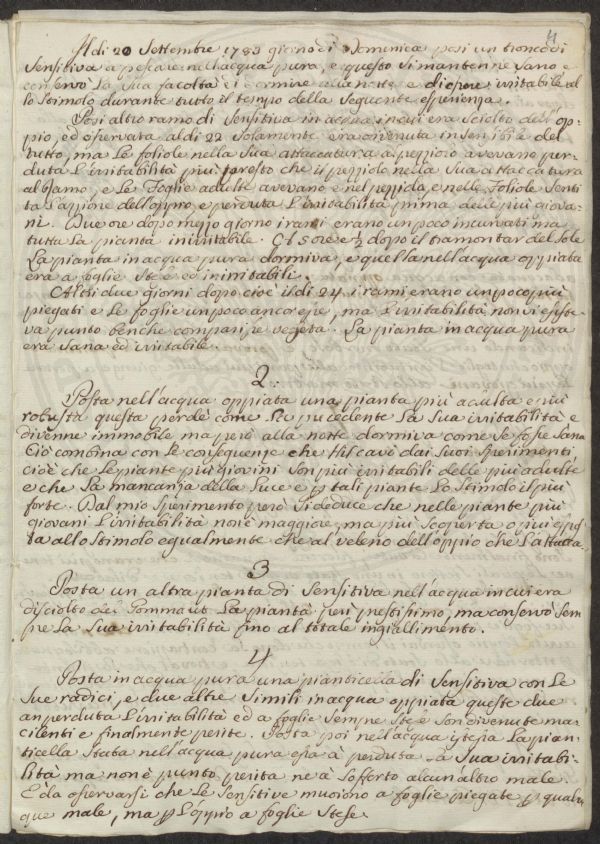 4
A di 20 Settembre 1783 giorno di Domenica posi un tronco di
Sensitiva a pescare nell'acqua pura, e questo si mantenne sano e
conservò la sua facoltà di dormire alla notte e di essere irritabile al
lo stimolo durante tutto il tempo della seguente esperienza.
Posi altro ramo di Sensitiva in acqua in cui era sciolto dell'op-
pio, ed osservata al di 22 solamente era divenuta insensibile del
tutto, ma le foliole nella sua attaccatura al pezziolo avevano per-
duta l'irritabilità più presto che il pezziolo nella sua attaccatura
al Gamo, e le foglie adulte avevano e nel pezziolo, e nelle foliole senti
ta l'azzione dell'oppio e perduta l'irritabilità prima delle più giova-
ni. Due ore dopo mezzo giorno i rami erano un poco incurvati ma
tutta la pianta inirritabile. Al Sole e ½ dopo il tramontar del Sole
la pianta in acqua pura dormiva, e quella nell'acqua oppiata
era a foglie stese ed inirritabili.
Altri due giorni dopo cioè il di 24 i rami erano un poco più
piegati e le foglie un poco ancor esse, ma l'irritabilità non vi esiste-
va punto benche comparisse vegeta. La pianta in acqua pura
era sana ed irritabile.
2
Posta nell'acqua oppiata una pianta più adulta e più
robusta questa perdè come la precedente la sua irritabilità e
divenne immobile ma però alla notte dormiva come se fosse sana
Ciò combina con le conseguenze che Hil scavò dai suoi sperimenti,
cioè che le piante più giovini son più irritabili delle più adulte
e che la mancanza della luce è p tali piante lo stimolo il più
forte. Dal mio sperimento però si deduce che nelle piante più
giovani l'irritabilità non è maggiore, ma più scoperta o più espos
ta allo stimolo egualmente che al veleno dell'oppio che l'attacca.
3
Posta un altra pianta di Sensitiva nell'acqua in cui era
disciolto del Pommaut la pianta perì prestissimo, ma conservò sem
pre la sua irritabilità fino al totale ingiallimento.
4
Posta in acqua pura una pianticella di Sensitiva con le
sue radici, e due altre simili in acqua oppiata queste due
an perduta l'irritabilità ed a foglie sempre stese son divenute ma-
cilenti e finalmente perite. Posta poi nell'acqua istessa la pian-
ticella stata nell'acqua pura essa à perduta la sua irritabi-
lità ma non è punto perita ne à sofferto alcun altro male.
È da osservarsi che le Sensitive muoiono a foglie piegate p qualun
que male, ma p l'oppio a foglie stese.